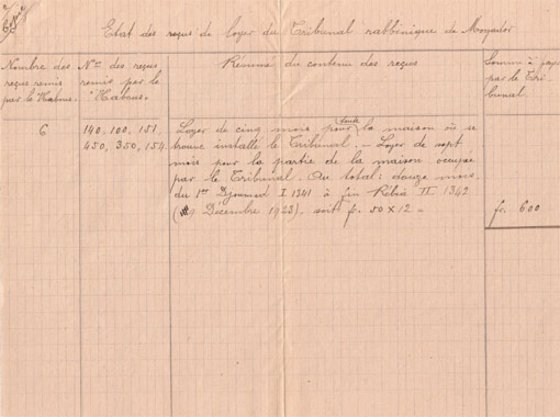 Etat des reçus de loyer du Tribunal rabbinique de Mogador
Nombre des
reçus remis
par le Habous.
Nos des reçus
remis par le
Habous.
Résumé du contenu des reçus
Somme à payer
par le Tri-
bunal.
6
140, 100, 151,
450, 350, 154
Loyer de cinq mois pour toute la maison où se
trouve installé le Tribunal. - Loyer de sept
mois pour la partie de la maison occupée
par le Tribunal. Au total: douze mois.
du 1er Djoumad I 1341 à fin Rébia II 1342
(9 Décembre 1923). soit fr. 50 x 12 =
fr. 600